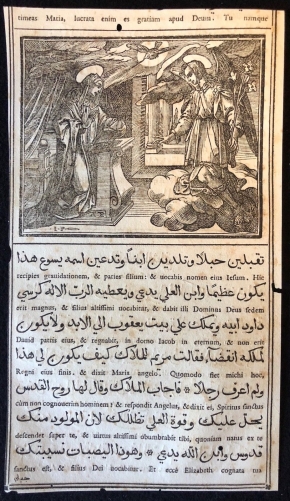 timeas Maria, inuenta enim es gratiam apud Deum. Tu namque
تقبلين حبلا وتلدين ابنا وتدعين اسمه يسوع هذا
recipies grauidationem, & paries filium: & uocabis nomen eius Iesum. Hic
يكون عظيما وابن العلي يدعي ويعطيه الرب الاله كرسي
erit magnus, & filius altissimi uocabitur, & dabit illi Dominus Deus sedem
داود ابيه ويملك علي بيت يعقوب الي الابد ولايكون
Dauid patris eius, & regnabit, in domo Iacob in eternum, & non erit
لملكه انقضا فقالت مريم للملاك كيف يكون لي هذا
Regni eius finis, & dixit Maria angelo. Quomodo fiet michi hoc,
ولم اعرف رجلا فاجاب الملاك وقال لها روح القدس
cùm non cognouerim hominem? & respondit Angelus, & dixit ei, Spiritus sanctus
يحل عليك وقوة العلي تظللك لان المولود منك
descendet super te, & uirtus altissimi obumbrabit tibi, quoniam natus ex te
قدوس وابن الله يدعي وهوذا اليصبات نسيبتك
sanctus est, & filius Dei uocabitur. Et eccè Elizabeth cognata tua